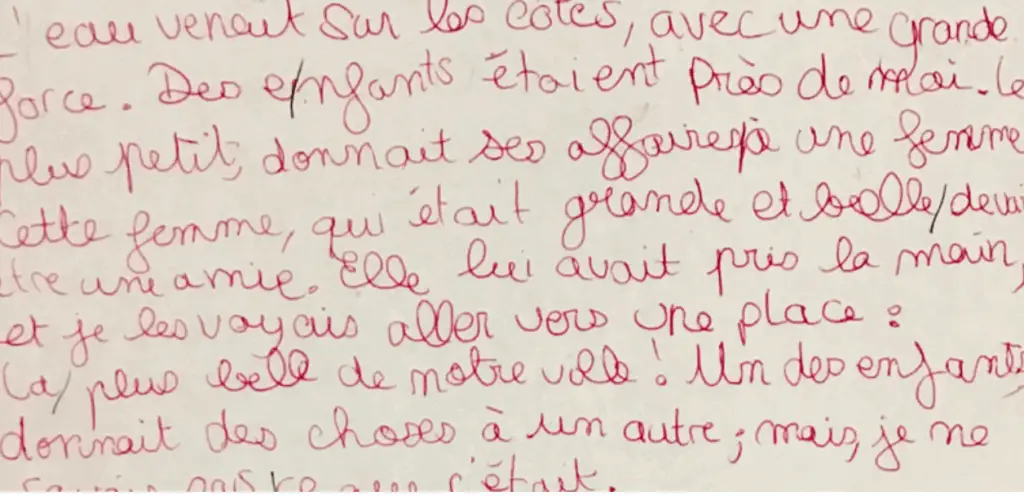 l'eau venait sur les côtés, avec une grande
force. Des enfants étaient près de moi. Le
plus petit, donnait ses affaires à une femme
Cette femme, qui était grande et belle, devai
être une amie. Elle lui avait pris la main,
et je les voyais aller vers une place :
la plus belle de notre ville ! Un des enfants
donnait des choses à un autre ; mais, je ne
c'était.